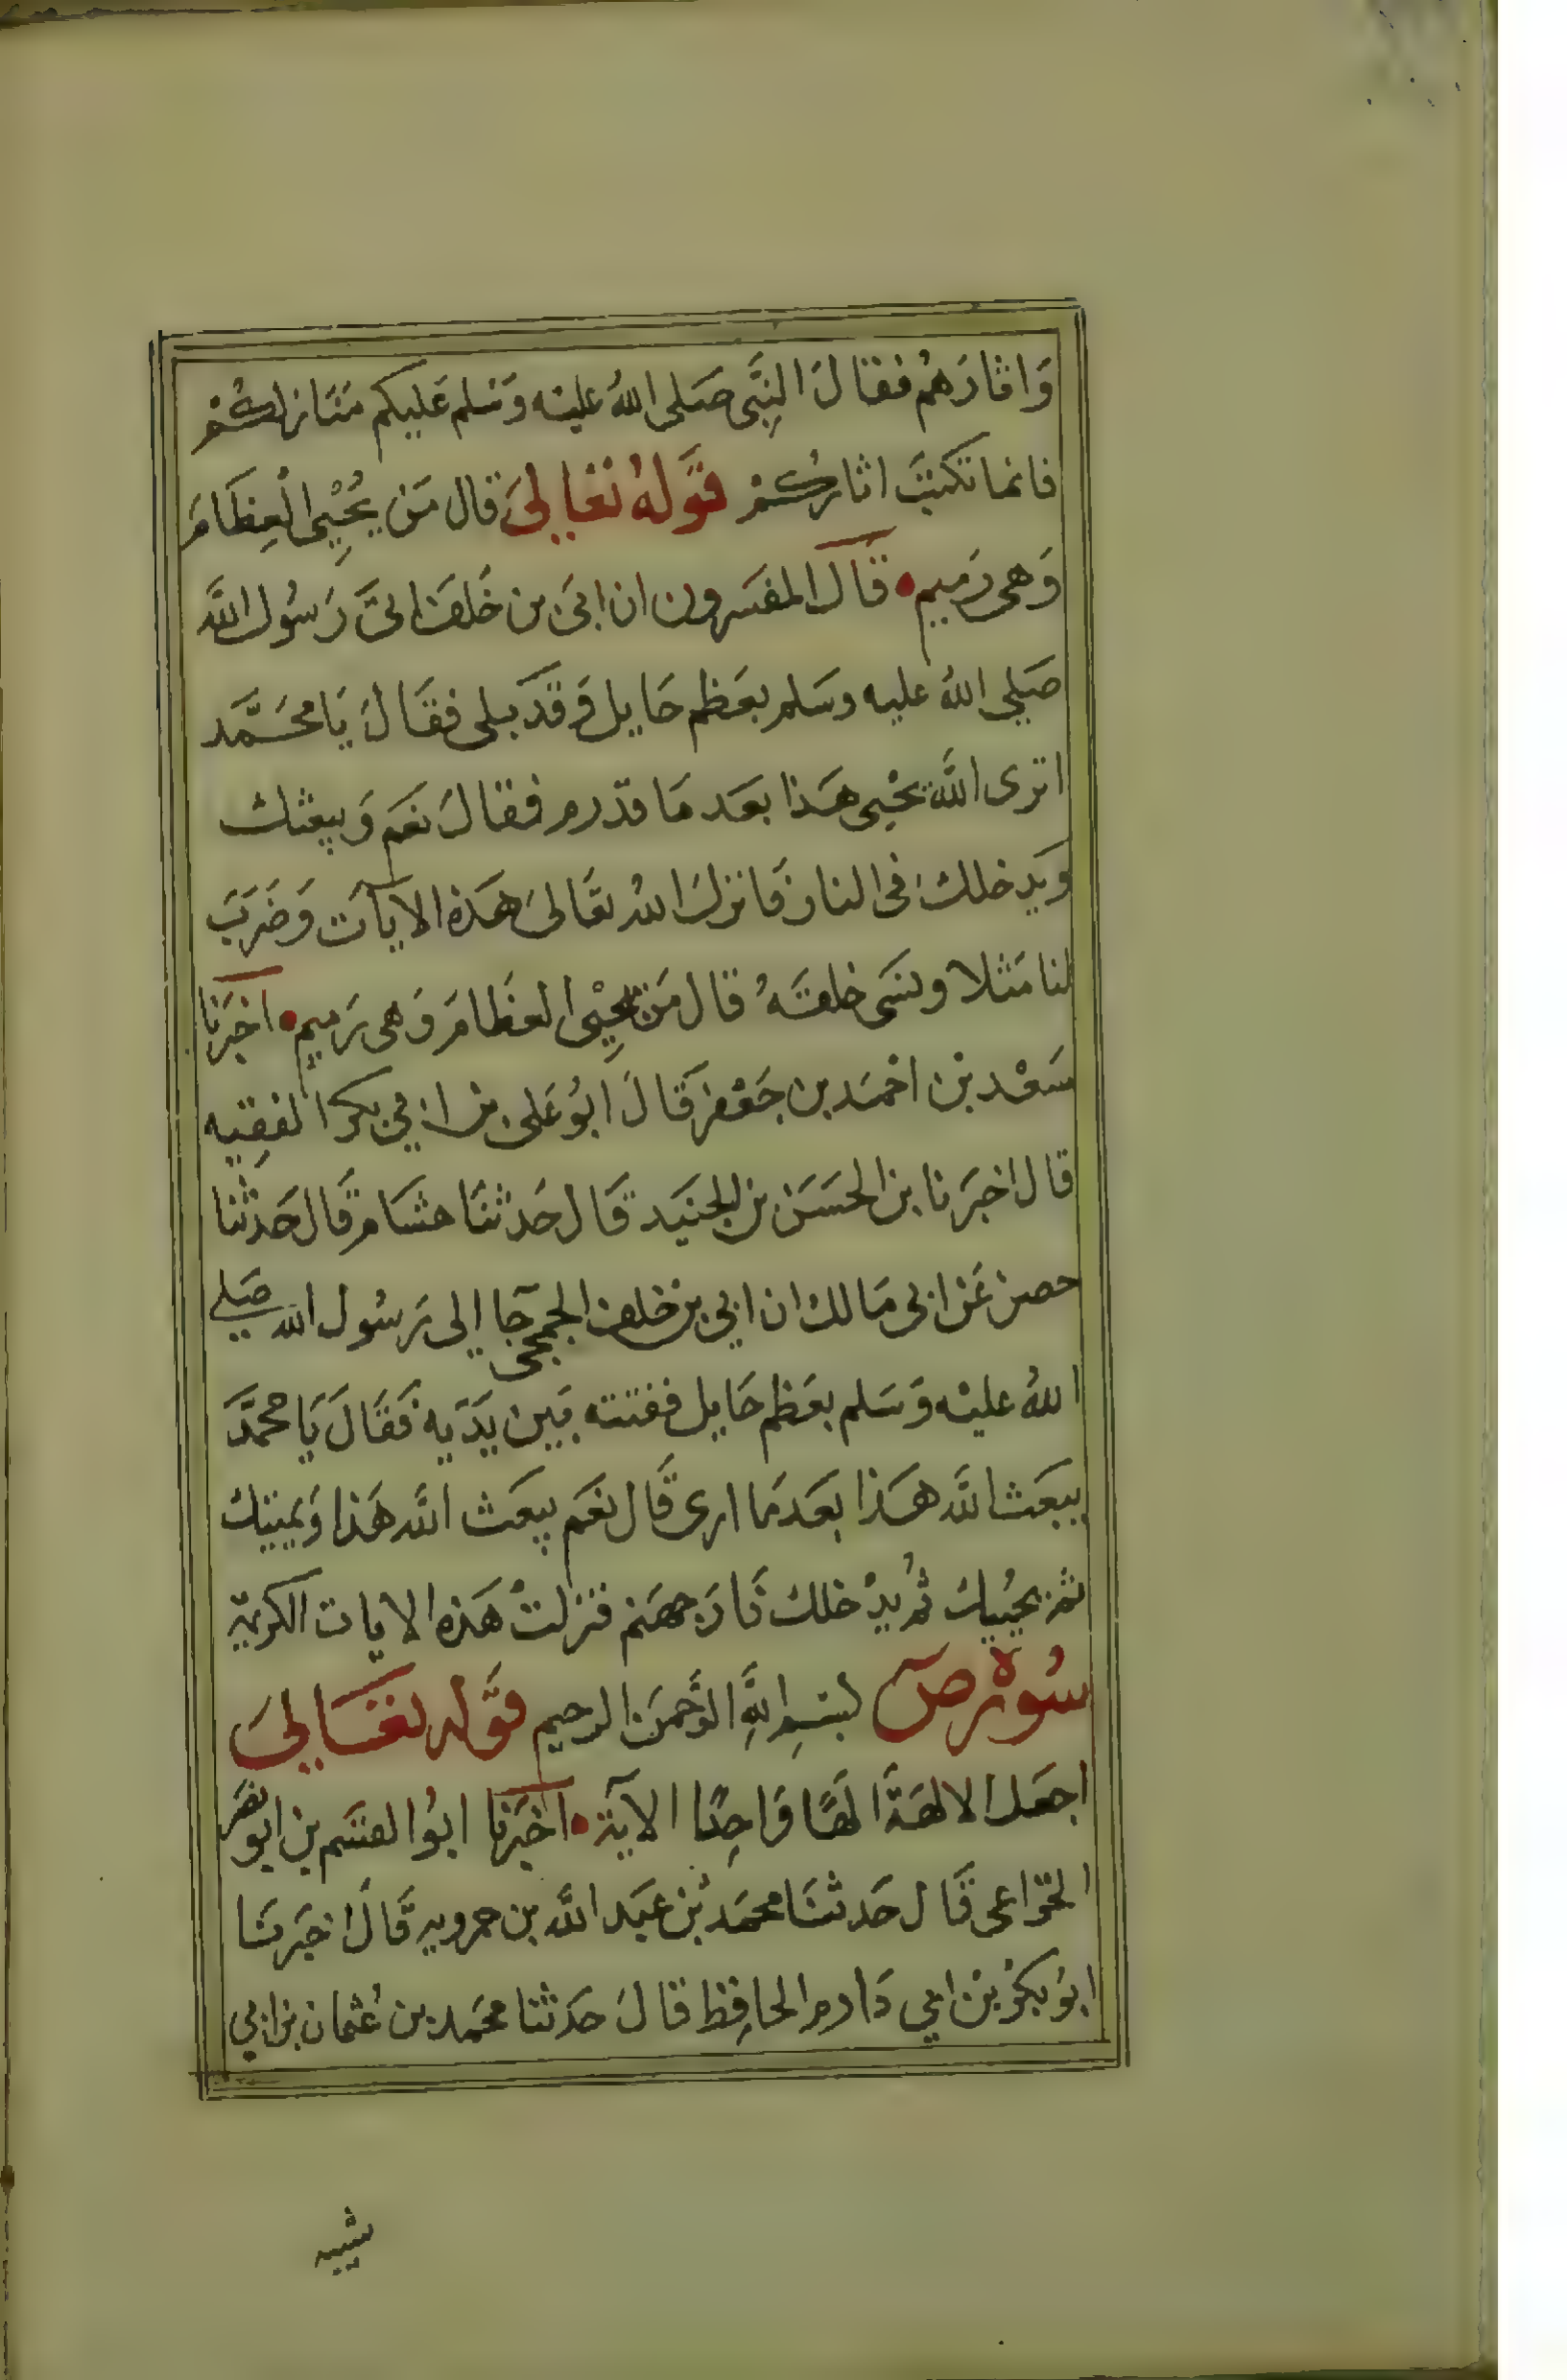 وَاثارَهم فقالَ النبَّى صَلى اللهُ عليْه وَسَلم عَليكم مَنَازلكمْ
فانما تكتبَ اثارُكمْ قَوله تعَالىَ قال مَن يُحْيِى الْعِظامَ
وَهى رَميم قَالَ المفسرون ان ابىَ بن خَلف اتىَ رَسُول اللَّه
صَلي اللهُ عليه وسَلم بعَظم حَايل وَقد بلى فقَالَ يَا محَمَّد
اترى اللَّه يحْيى هَذا بعَد مَا قدرم فقالَ نعَم وَيبعثك
وَيدخلك فى النار فَانزلَ اللهُ تعَالىَ هَذه الايآت وَضَربَ
لنا مَثلا ونسَى خلقهُ قال مَن يحْيِى العظَامَ وَهى رَميم اخبَرنا
سَعْد بن احمَد بن جَعْفر قَالَ ابوُ عَلى بن ابي بكر الفقِيه
قال اخبَرنا بن الحسَن بن الجنيَد قَال حَدثنَا هشَام قَال حَدثنا
حصن عَن ابى مَالك ان ابي بن خلف الجمحى جَا إلى رَسُول الله صَلي
اللهُ عليْه وَسَلم بعَظم حَايل ففتته بَين يَدَيه فَقَالَ يَا محمَّد
يبعَث اللَّه هَذا بعَد مَا ارى قَال نعَم يبعَث اللَّه هَذا وَيميتك
ثم يحُييك ثم يُدْخلك نَارَ جهَنم فنزلتْ هَذه الايات الكريمة
سُورة صَ بسْمِ اللَّهِ الرَّحمَن الرحيم قوَله تعَالىَ
اجعَل الالهَةَ الهًا وَاحِدًا الآية اخبَرنا ابوُا القسَم بن ابو نصَر
الخزاعى قَال حَدثنَا محمَد بْن عبَد اللَّه بن حمرويه قَالَ اخبَرنَا
ابوُ بكرْ بْن ابي دَارم الحافِظ قالَ حَدثنا محَمد بن عُثمان بن ابي
شيبه